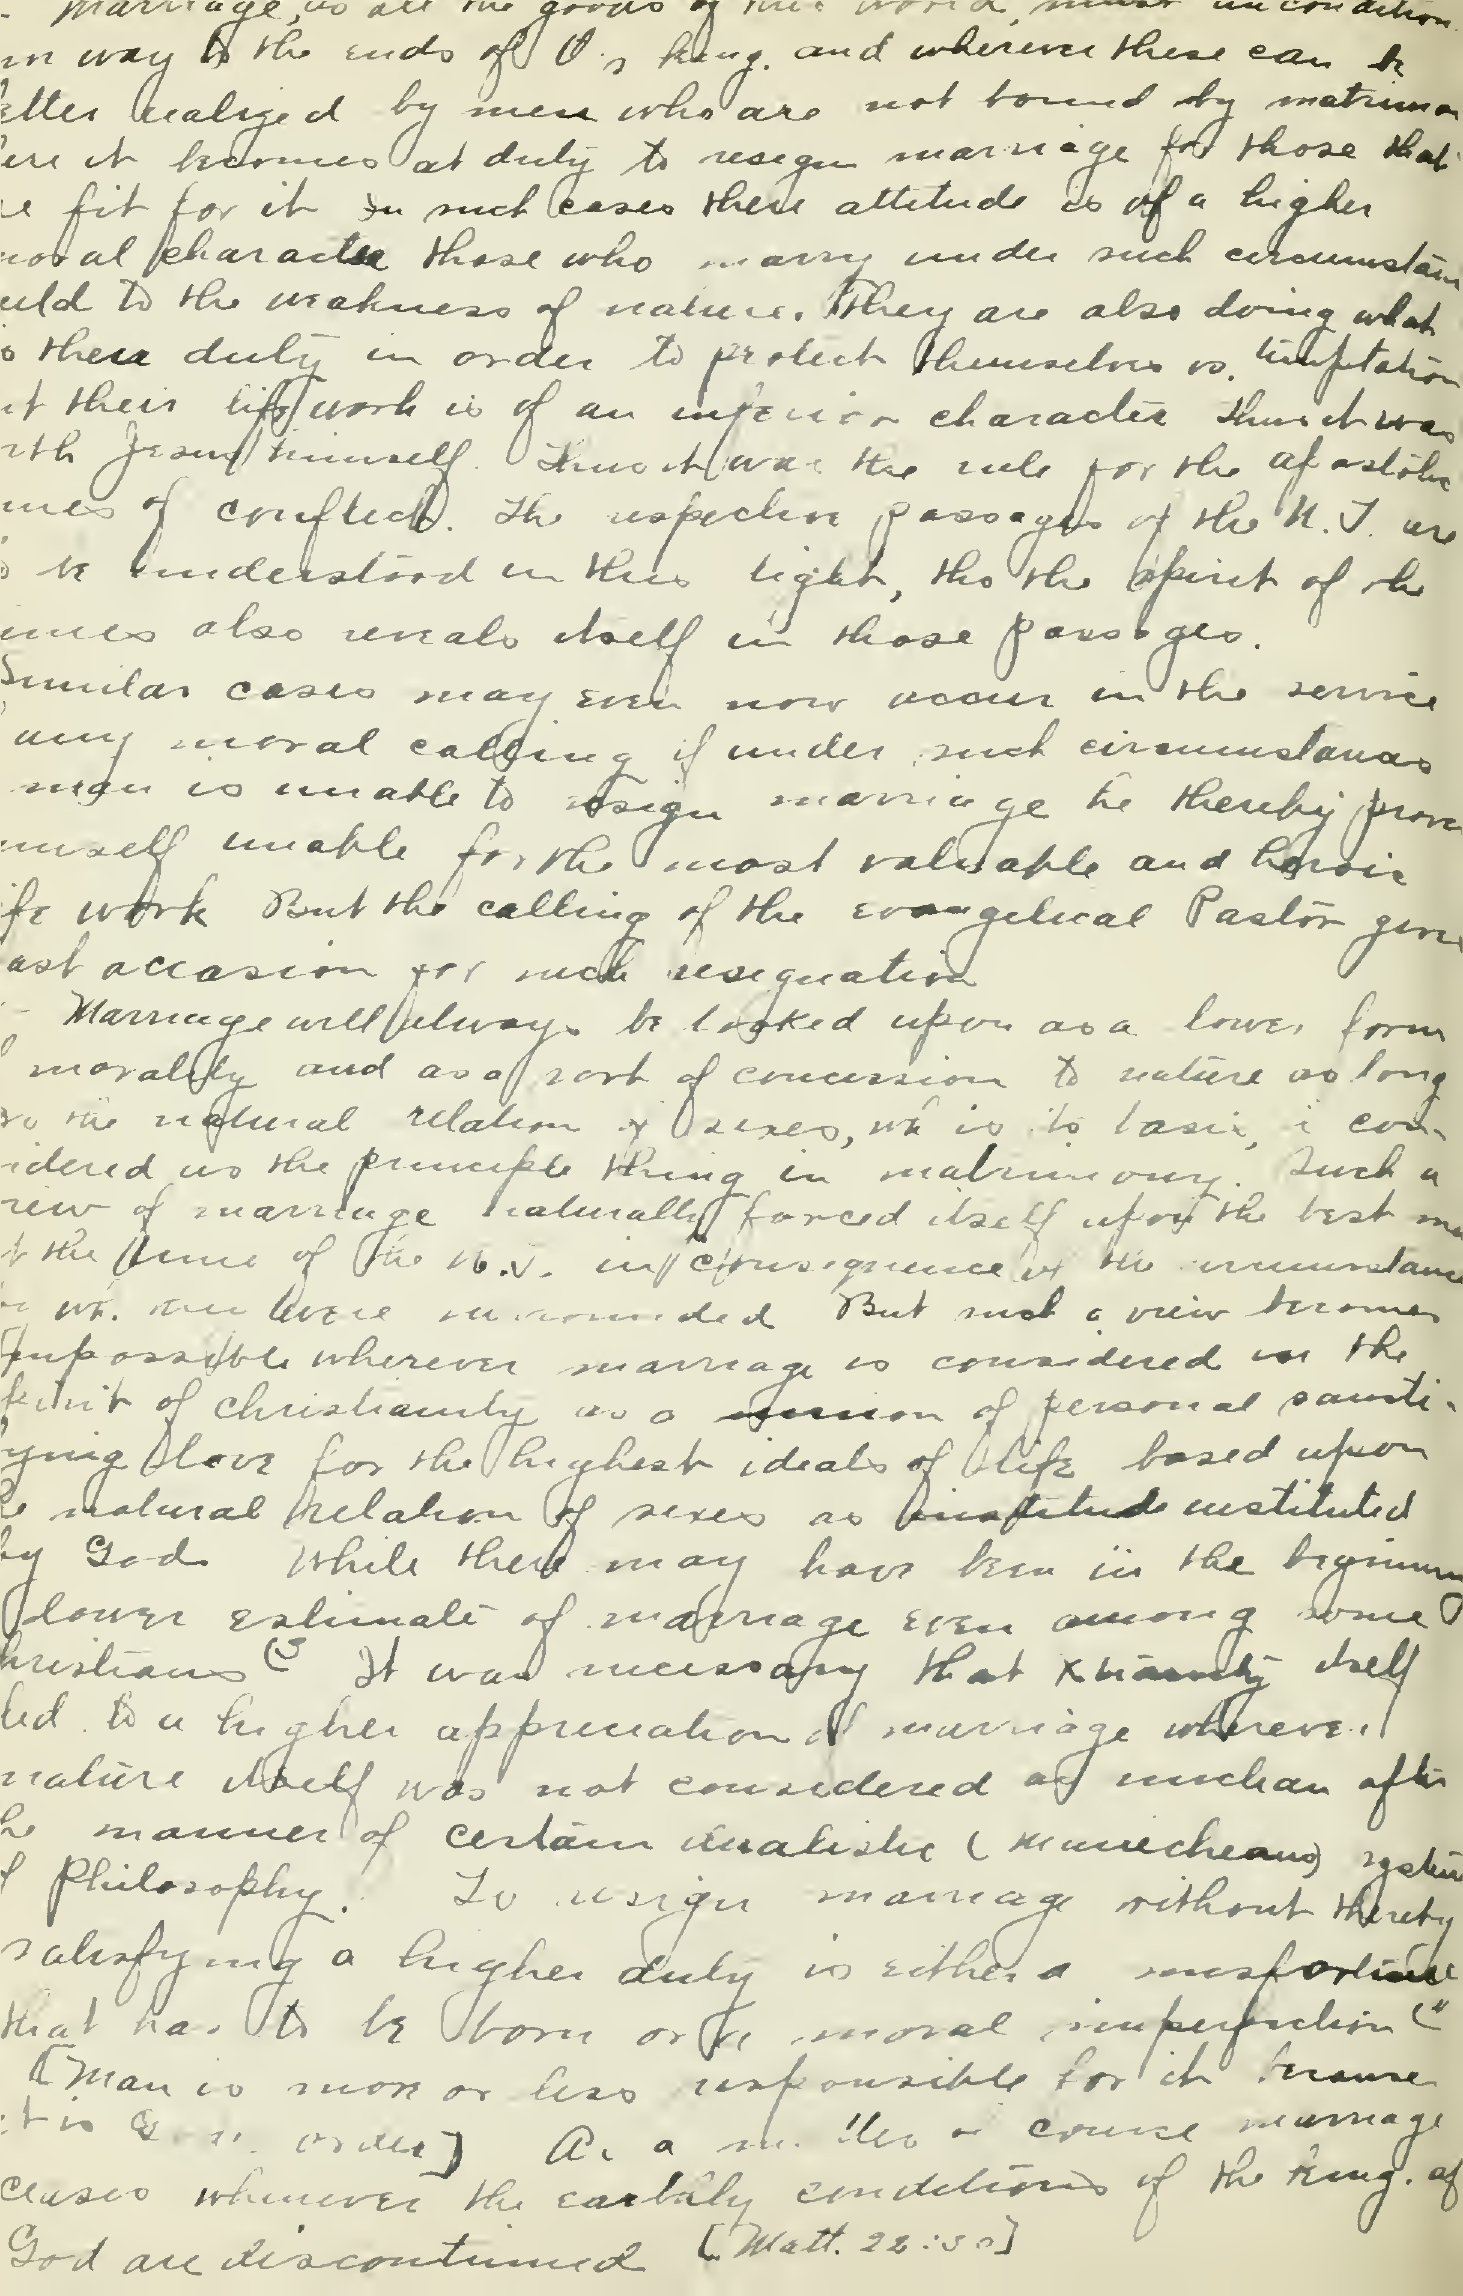 Marriage, as all the goods of this world, must uncondition
in way to the ends of G's king. and wherever these can be
etter realized by men who are not bound by matrimo
ere it becomes at duty to resign marriage for those that
re fit for it In such cases there attitude is of a higher
moral character those who marry under such circumstan
ield to the weakness of nature. They are also doing what
s there duty in order to protect themselves vs. temptation
ut their life work is of an inferior character than it was
ith Jesus himself. Thus it was the rule for the apostolic
imes of conflict. The respective passages of the N. T. are
o be understood in this light, tho the spirit of the
imes also reveals itself in those passages.
Similar cases may even now occur in the service
any moral calling if under such circumstances
man is unable to resign marriage he thereby prove
imself unable for the most valuable and heroic
ife work But the calling of the evangelical Pastor give
ast occasion for such resignation
Marriage will always be looked upon as a lower form
f morality and as a sort of concession to nature as long
as the natural relation of sexes, wh is its basis, is con-
idered as the principle thing in matrimony. Such a
view of marriage naturally forced itself upon the best me
t the time of the N.T. in consequence of the circumstance
wh. were surrounded But such a view becomes
impossible wherever marriage is considered in the
spirit of christianity as a union of personal sancti-
ying love for the highest ideals of life based upon
e natural relation of sexes as institute instituted
by God While there may have been in the beginning
lower estimate of marriage even among some
hristians (3 It was necessary that Xtianity itself
led to a higher appreciation of marriage wherever
nature itself was not considered as unclean after
he manner of certain dualistic (Manecheans) system
f Philosophy. To resign marriage without thereby
satisfying a higher duty is either a misfortune
that has to be born or a moral imperfection (4
[Man is more or less responsible for it because
it is order] As a matter of course marriage
ceases whenever the earthly conditions of the king. of
God are discontinued [Matt. 22:30]